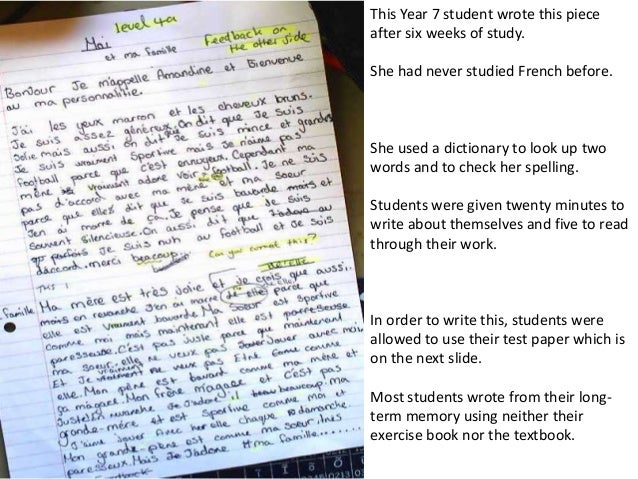 level 4a
Moi
et ma famille
Feedback on
the other side
Bonjour Je m'appelle Amandine et Bienvenue
au ma personnalitie.
J'ai les yeux marron et les cheveux bruns.
Je suis assez généreux. On dit que Je suis
Jolie mais aussi on dit que Je suis mince et grande
Je suis vraiment sportive mais Je n'aime pas
football parce que c'est ennuyeux. Cependant ma
mère vraiment adore football. Je ne suis
pas d'accord avec ma mère et ma soeur
parce que elles dit que Je suis bavarde mais
J'en ai marre de ça. Je pense que Je suis
souvent silencieuse. On aussi dit que J'adore au
Je suis nuh au football et Je suis
d'accord. merci beacoup.
Can you correct this?
famille
Ma mère est très Jolie et Je crois que aussi
mais en revanche J'en ai marre de elle parce que
elle est vraiment bavarde. Ma soeur est sportive
comme moi mais maintenant elle est parresseuse
paresseuse. C'est pas Juste parce que maintenant
ma soeur elle ne veux pas Jouer avec moi
Et Je vraiment ne veux pas Etre comme
elle. Mon père est bavard comme ma mère et
ça m'agace. Mon frère m'agace et c'est pas
Juste. revanche Je J'adore il beaucoup. ma
grande-mère et est sportive comme moi et
J'aime Jouer avec her elle chaque damanche.
Mon grande-père est comme ma soeur, il est
paresseux. Mais Je J'adore ma famille.......
This Year 7 student wrote this piece
after six weeks of study.
She had never studied French before.
She used a dictionary to look up two
words and to check her spelling.
Students were given twenty minutes to
write about themselves and five to read
through their work.
In order to write this, students were
allowed to use their test paper which is
on the next slide.
Most students wrote from their long-
term memory using neither their
exercise book nor the textbook.